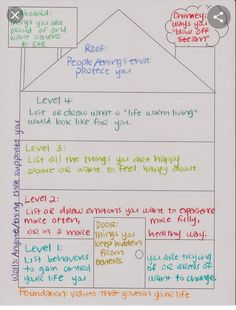 Billboard:
things you are
proud of and
want others
to see
Chimney:
ways you
"blow off
steam"
ROOF:
People/things that
protect you
Level 4:
List or draw what a "life worth living"
would look like for you.
Level 3:
List all the things you are happy
about or want to feel happy about.
Level 2:
List or draw emotions you want to experience
more often, more fully,
or in a more healthy way.
DOOR:
things you
keep hidden
from
others
Level 1:
List behaviors you are trying
to gain control of or areas of
your life you want to change.
Walls: Anyone/thing that supports you
Foundation: values that govern your life